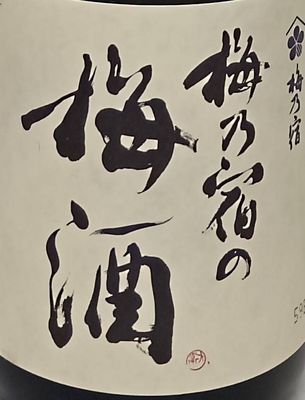 梅乃宿
梅乃宿の
梅酒